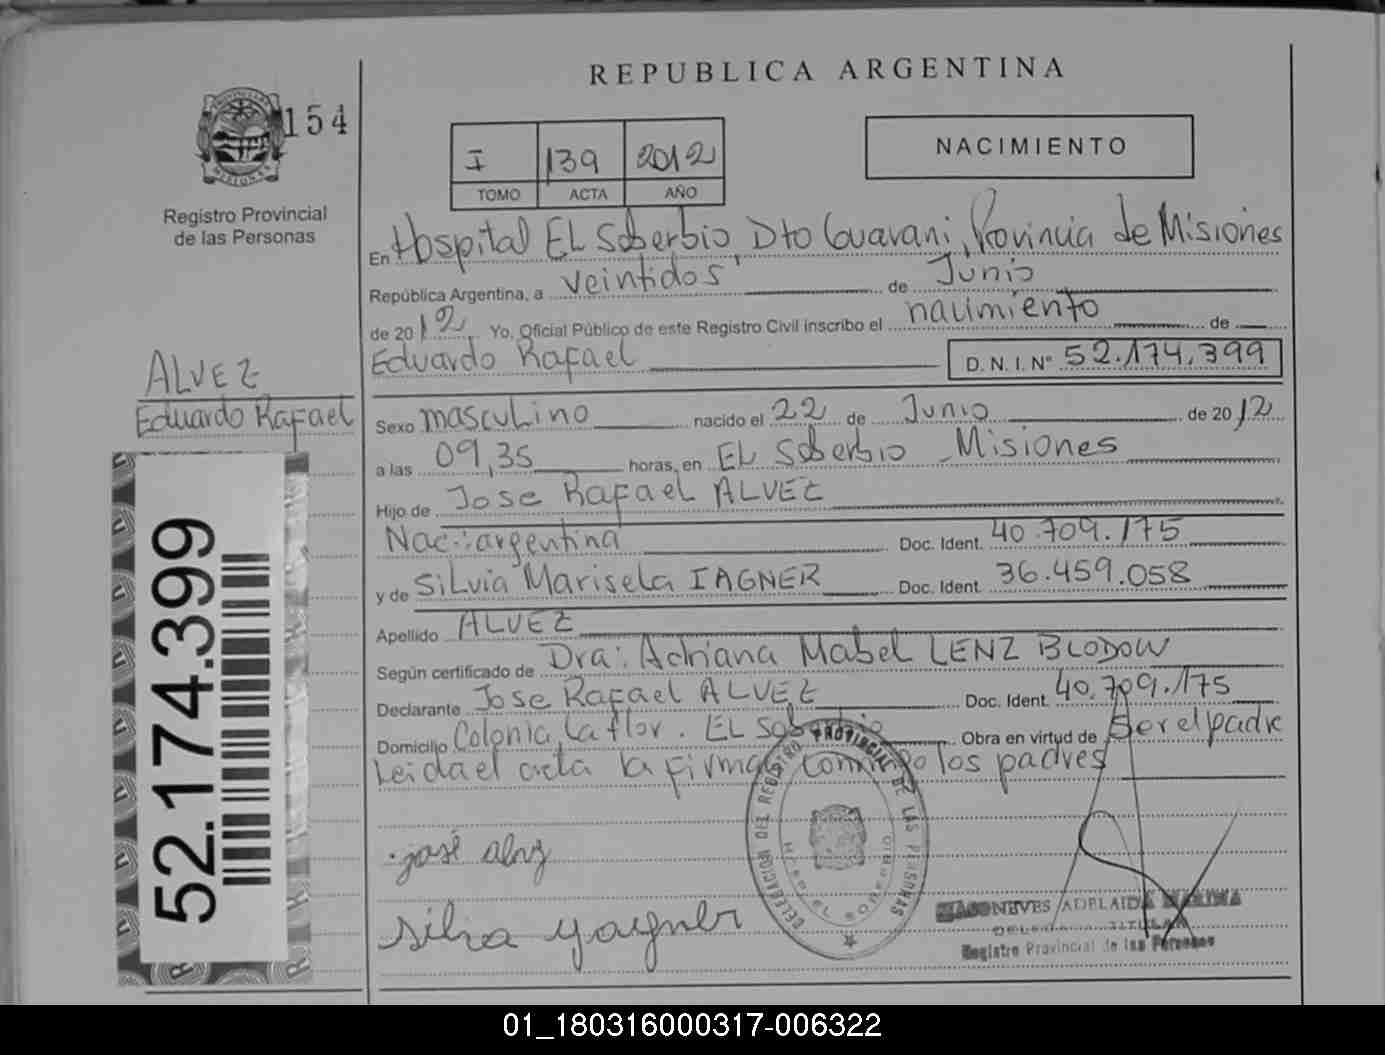 REPUBLICA ARGENTINA
PROVINCIA DE MISIONES
154
Registro Provincial
de las Personas
I 139 2012
TOMO ACTA AÑO
NACIMIENTO
En Hospital EL Soberbio, Dto Guarani, Provincia de Misiones
República Argentina, a veintidos de Junio
de 2012 Yo, Oficial Público de este Registro Civil inscribo el nacimiento de
Eduardo Rafael D. N. I. Nº 52.174.399
ALVEZ
Eduardo Rafael
Sexo masculino nacido el 22 de Junio de 2012
a las 09,35 horas, en EL Soberbio Misiones
Hijo de Jose Rafael ALVEZ
Nac: argentina Doc. Ident. 40.709.175
y de Silvia Marisela IAGNER Doc. Ident. 36.459.058
Apellido ALVEZ
Según certificado de Dra: Adriana Mabel LENZ BLODOW
Declarante Jose Rafael ALVEZ Doc. Ident. 40.709.175
Domicilio Colonia La flor. EL Soberbio Obra en virtud de ser el padre
Leida el acta la firman conmigo los padres
52.174.399
josé alvz
silva yagner
DELEGACION DEL REGISTRO PROVINCIAL DE LAS PERSONAS
HOSPITAL SOBERBIO
NEVES ADELAIDA MARINA
DELEGADA TITULAR
Registro Provincial de las Personas
01_180316000317-006322